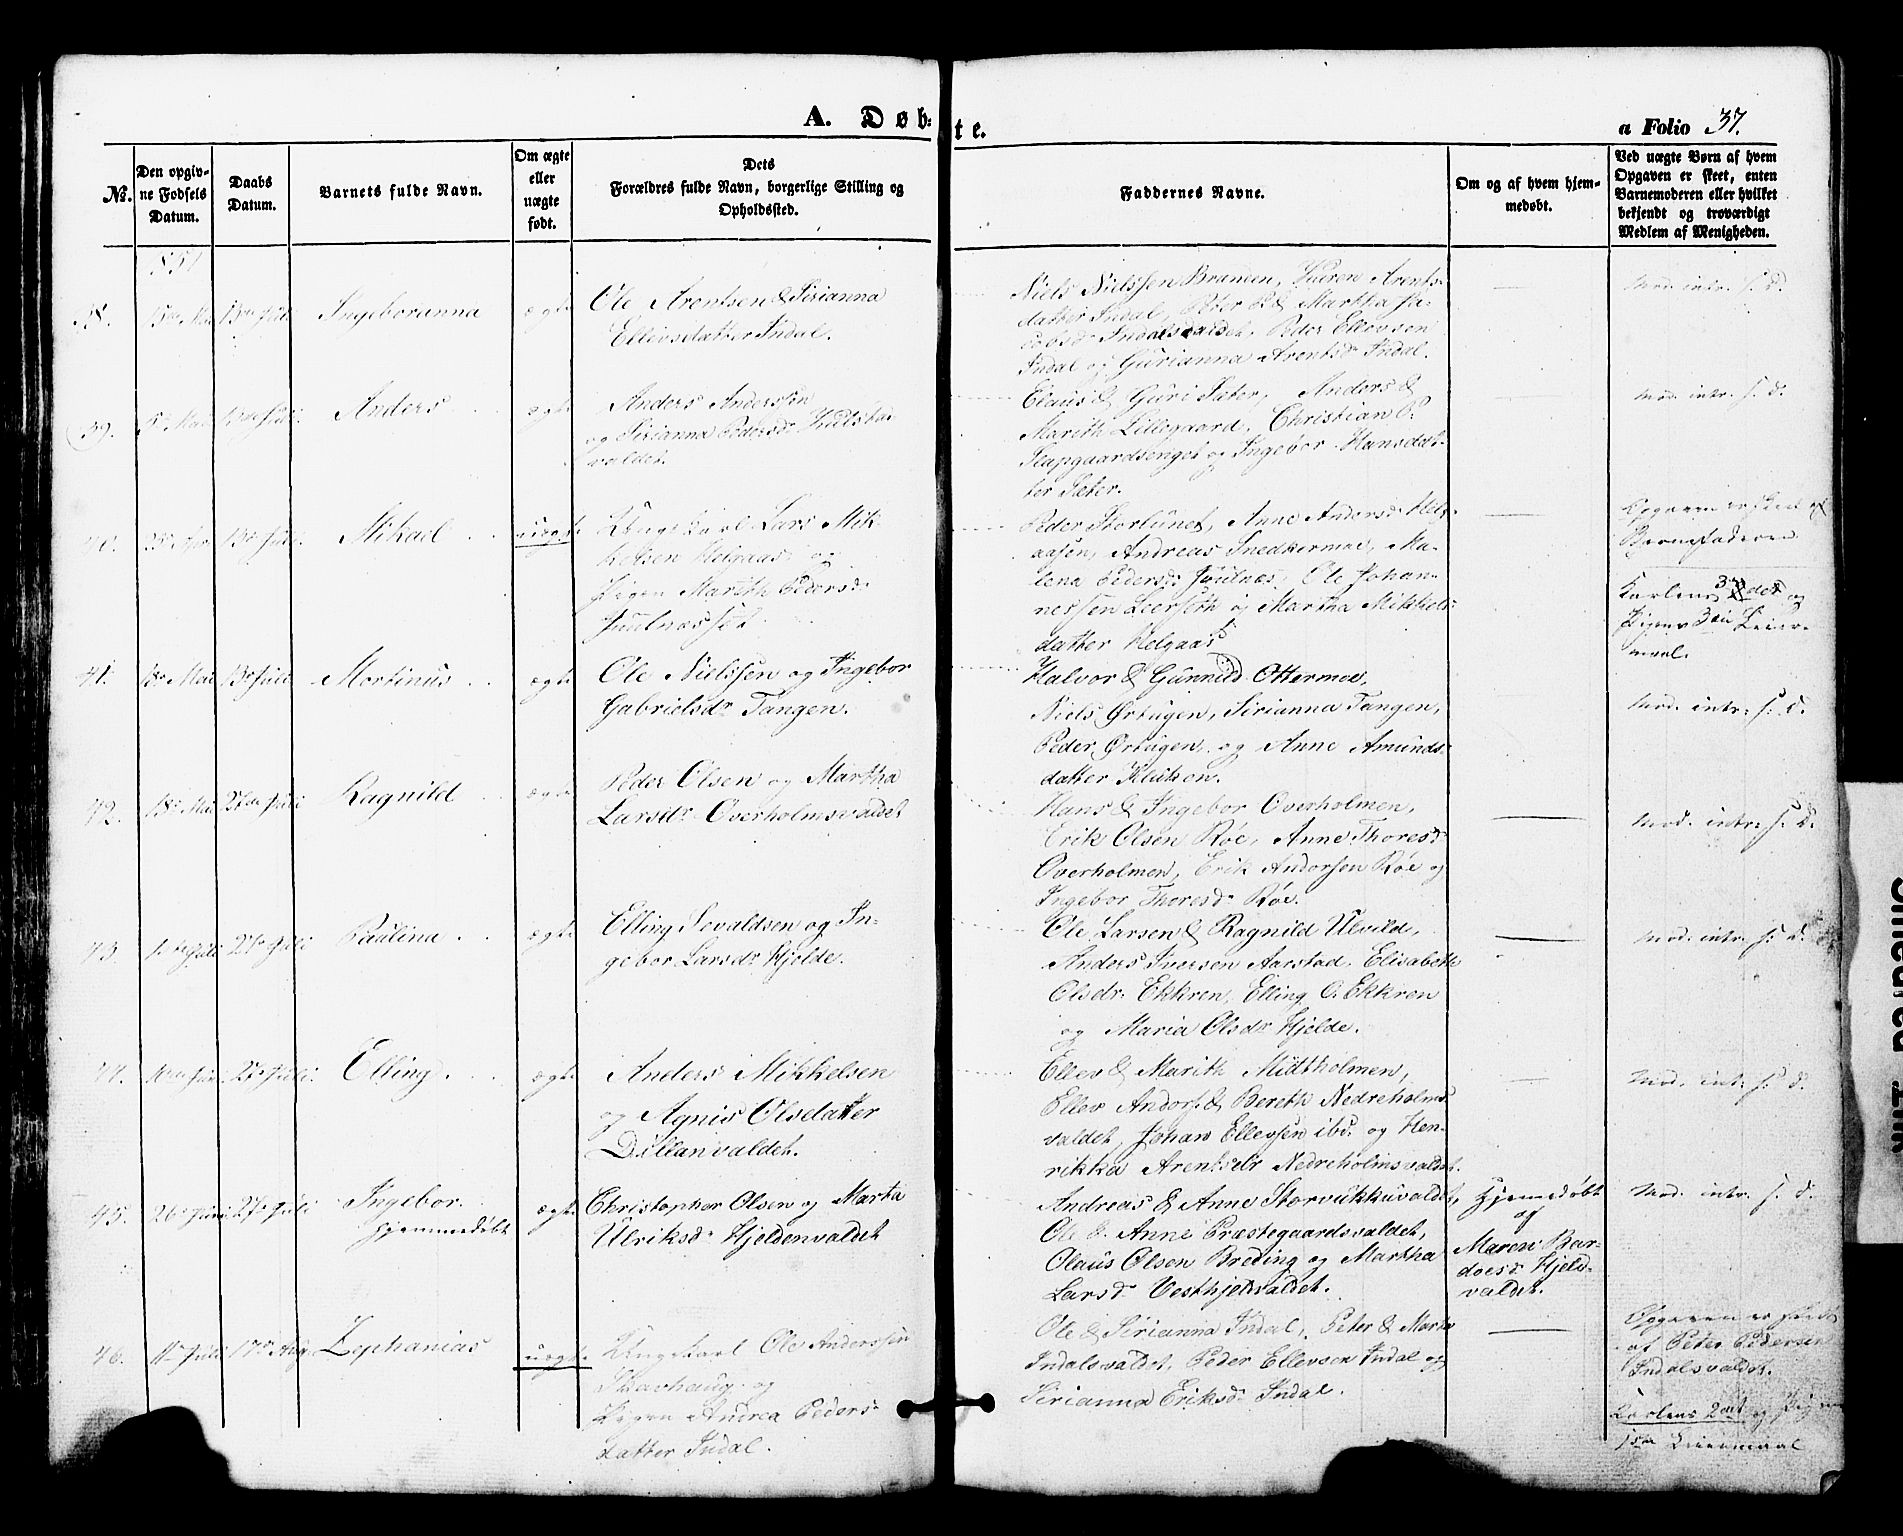 A. Døb-
te.
a Folio 37.
No.
Den opgiv-
ne Fødsels
Datum.
Daabs
Datum.
Barnets fulde Navn.
Om ægte
eller
uægte
født.
Dets
Forældres fulde Navn, borgerlige Stilling og
Opholdssted.
Faddernes Navne.
Om og af hvem hjem-
medøbt.
Ved uægte Børn af hvem
Opgaven er skeet, enten
Barnemoderen eller hvilket
bekjendt og troværdigt
Medlem af Menigheden.
38.
Ingeboranna
ægte
Ole Arentsen & Sirianna
Ellevsdatter Indal.
Niels Nielssen Bramen, Arents-
datter Indal, Peter P. & Martha Ja-
cobsd. Indalsvaldet, Peder Ellevsen
Indal og Gurianna Arentsd. Indal.
Mod. intr. s. d.
39.
Anders
ægte
Anders Anderssen
og Sirianna Pedersdr
valdet.
Claus & Guri Sæter, Anders &
Marith Lillegaard, Christian P.
Slapgaardsenget og Ingebor Hansdat-
ter Sæter.
Mod. intr. s. d.
40.
Mikael
uægte
Ungkarl Lars Mik-
kelsen Helgaas og
Pigen Marith Pedersdr
Juulnæsset
Peder Storlunet, Anne Andersdr Helg-
aasen, Andreas Snedkermoe, Ma-
lena Pedersdr Juulnæs, Ole Johan-
nessen Leerseth og Martha Mikkels-
datter Helgaas
Opgaven er skeet af
Barnefaderen
Karlens 3die og
Pigens 3die Leier-
maal.
41.
18de Mai
13de Juli
Mortinus
ægte
Ole Nielssen og Ingebor
Gabrielsdr Tangen.
Halvor & Gunnild Ottermoe,
Niels Ørtugen, Sirianna Tangen,
Peder Ørtugen og Anne Amunds-
datter Kluken.
Mod. intr. s. d.
42.
18de Mai
27de Juli
Ragnild
ægte
Peder Olsen og Martha
Larsdr Overholmsvaldet
Hans & Ingebor Overholmen,
Erik Olsen Røe, Anne Thoresd.
Overholmen, Erik Andersen Røe og
Ingebor Thoresdr Røe.
Mod. intr. s. d.
43.
1ste Juli
27de Juli
Paulina
ægte
Elling Sevaldsen og In-
gebor Larsdr Hjelde.
Ole Larsen & Ragnild Ulvild,
Anders Iversen Aarstad, Elisabeth
Olsdr Ekkren, Elling O. Ekkren
og Maria Olsdr Hjelde.
Mod. intr. s. d.
44.
27de Juli
Elling
ægte
Anders Mikkelsen
og Agnis Olsdatter
Dillanvaldet.
Ellev & Marith Midtholmen,
Ellev Anders. & Bereth Nedreholms-
valdet, Johan Ellevsen ibd. og Hen-
rikka Arentsdr Nedreholmsvaldet.
Mod. intr. s. d.
45.
26de Juni
27de Juli
Ingebor
hjemmedøbt
ægte
Christopher Olsen og Marta
Ulriksdr Hjeldenvaldet
Andreas & Anne Storvukkuvaldet,
Ole & Anne Præstegaardsvaldet,
Olaus Olsen Breding og Martha
Larsd. Vesthjeldvaldet.
Hjemmedøbt
af
Maren Bar-
doesdr Hjeld-
valdet.
Mod. intr. s. d.
46.
17de Aug.
Zephanias
uægte
Ungkarl Ole Anderssen
Skavhaug og
Pigen Andrea Peders-
datter Indal.
Ole & Sirianna Indal, Peter & Marta
Indalsvaldet, Peder Ellevsen Indal og
Sirianna Eriksdr Indal.
Opgaven er skeet
af Peter Pedersen
Indalsvaldet.
Karlens 2det og Pigens
1ste Leiermaal